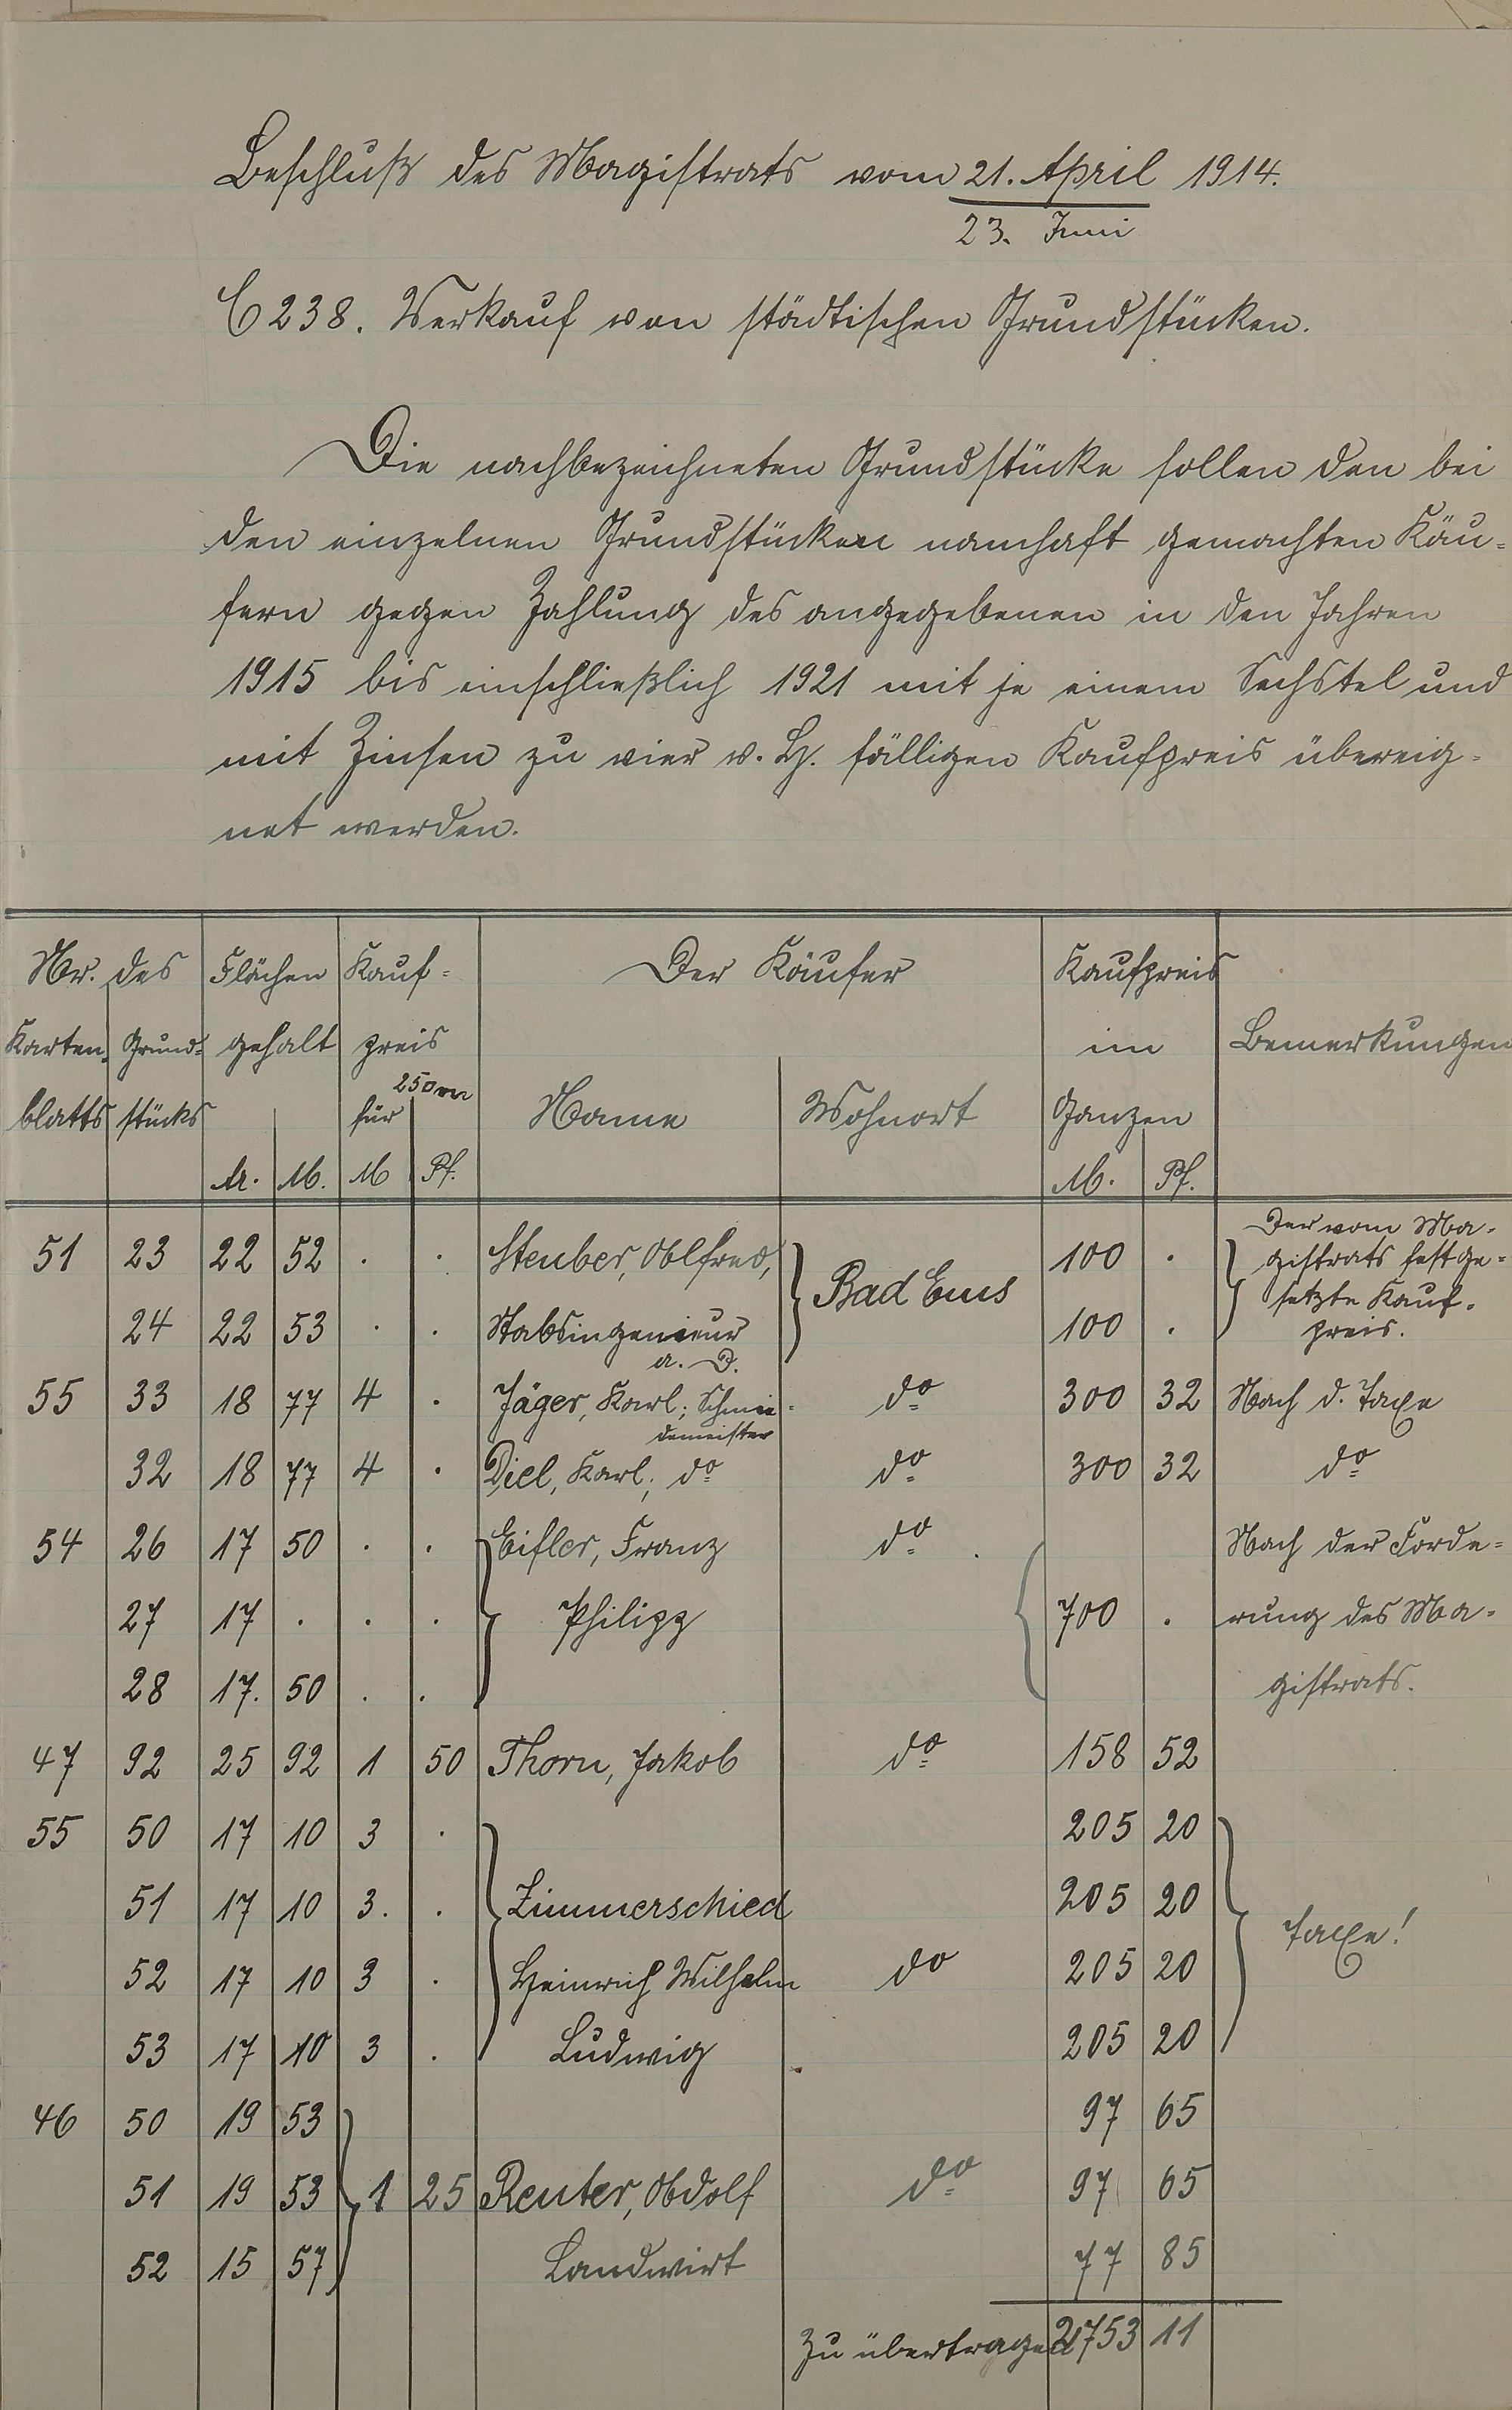 Beschluß des Magistrats vom 21. April 1914.
23. Juni
C 238. Verkauf von städtischen Grundstücken.
Die nachbezeichneten Grundstücke sollen den bei
den einzelnen Grundstücken namhaft gemachten Käu-
fern gegen Zahlung des angegebenen in den Jahren
1915 bis einschließlich 1921 mit je einem Sechstel und
mit Zinsen zu vier v. H. fälligen Kaufpreis übereig-
net werden.
Nr. des Flächen Kauf- Der Käufer Kaufpreis
Karten- Grund- gehalt preis im Bemerkungen
blatts stücks für 25 □m Name Wohnort Ganzen
Ar. M. M Pf. M. Pf.
51 23 22 52 . . Steuber, Alfred, Bad Ems 100 . Der vom Ma-
gistrats festge-
24 22 53 . . Stabsingenieur 100 . setzte Kauf-
a. D. preis.
55 33 18 77 4 . Jäger, Karl; Schmie- do 300 32 Nach d. Taxe
demeister
32 18 77 4 . Diel, Karl; do do 300 32 do
54 26 17 50 . . Eifler, Franz do . Nach der Forde-
27 17 . . . Philipp 700 . rung des Ma-
28 17. 50 . . gistrats.
47 92 25 92 1 50 Thorn, Jakob do 158 52
55 50 17 10 3 . 205 20
51 17 10 3. . Zimmerschied 205 20 Taxe!
52 17 10 3 . Heinrich Wilhelm do 205 20
53 17 10 3 . Ludwig 205 20
46 50 19 53 97 65
51 19 53 1 25 Reuter, Adolf do 97 65
52 15 57 Landwirt 77 85
Zu übertragen 2753 11